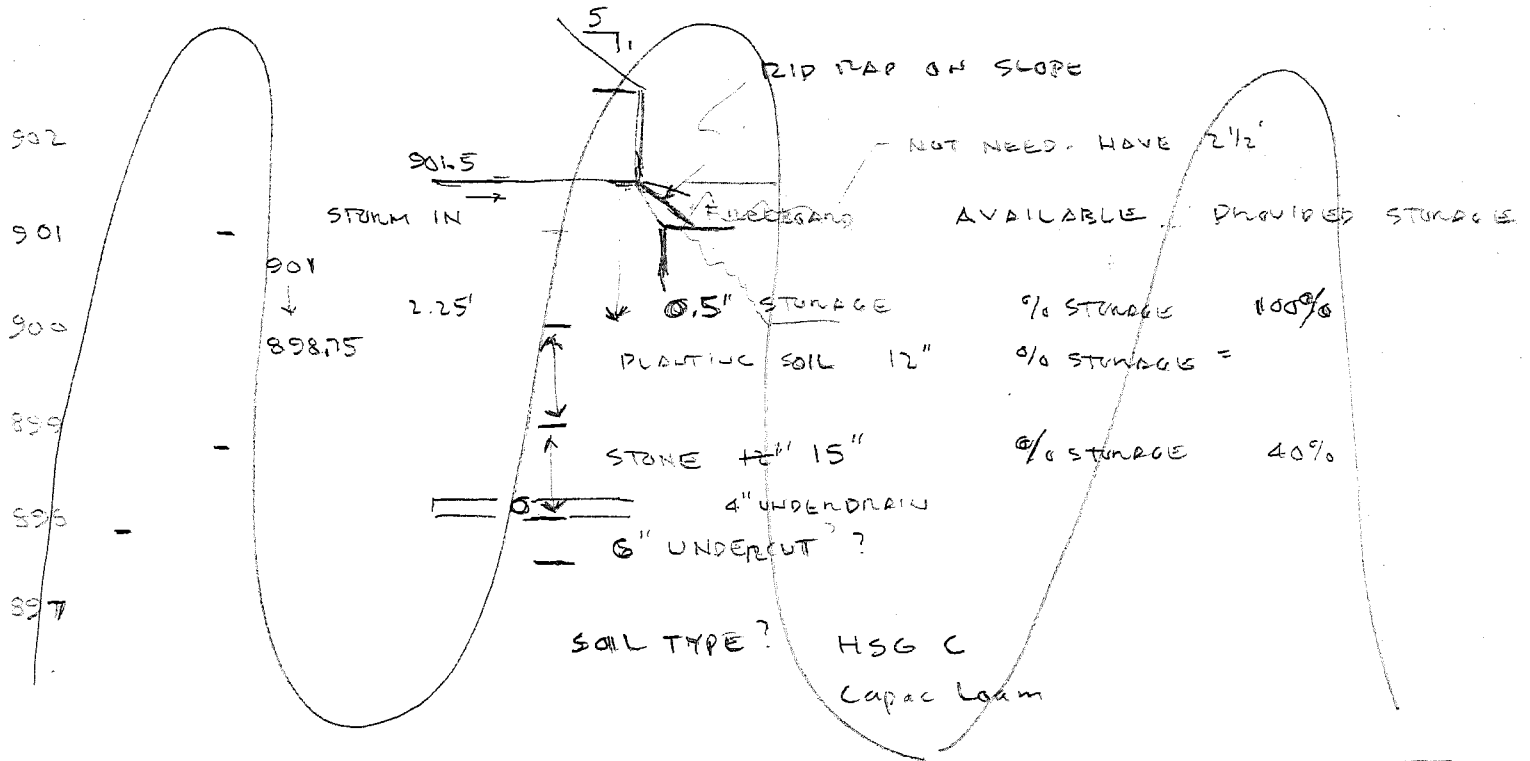 5
1
RIP RAP ON SLOPE
902
NOT NEED. HAVE 2 1/2'
901.5
STORM IN
AVAILABLE PROVIDED STORAGE
901
901
2.25'
0.5" STORAGE
% STORAGE 100%
900
898.75
PLANTING SOIL 12"
% STORAGE =
899
STONE 12" 15"
% STORAGE 40%
898
4" UNDERDRAIN
6" UNDERCUT ?
897
SOIL TYPE? HSG C
Capac Loam